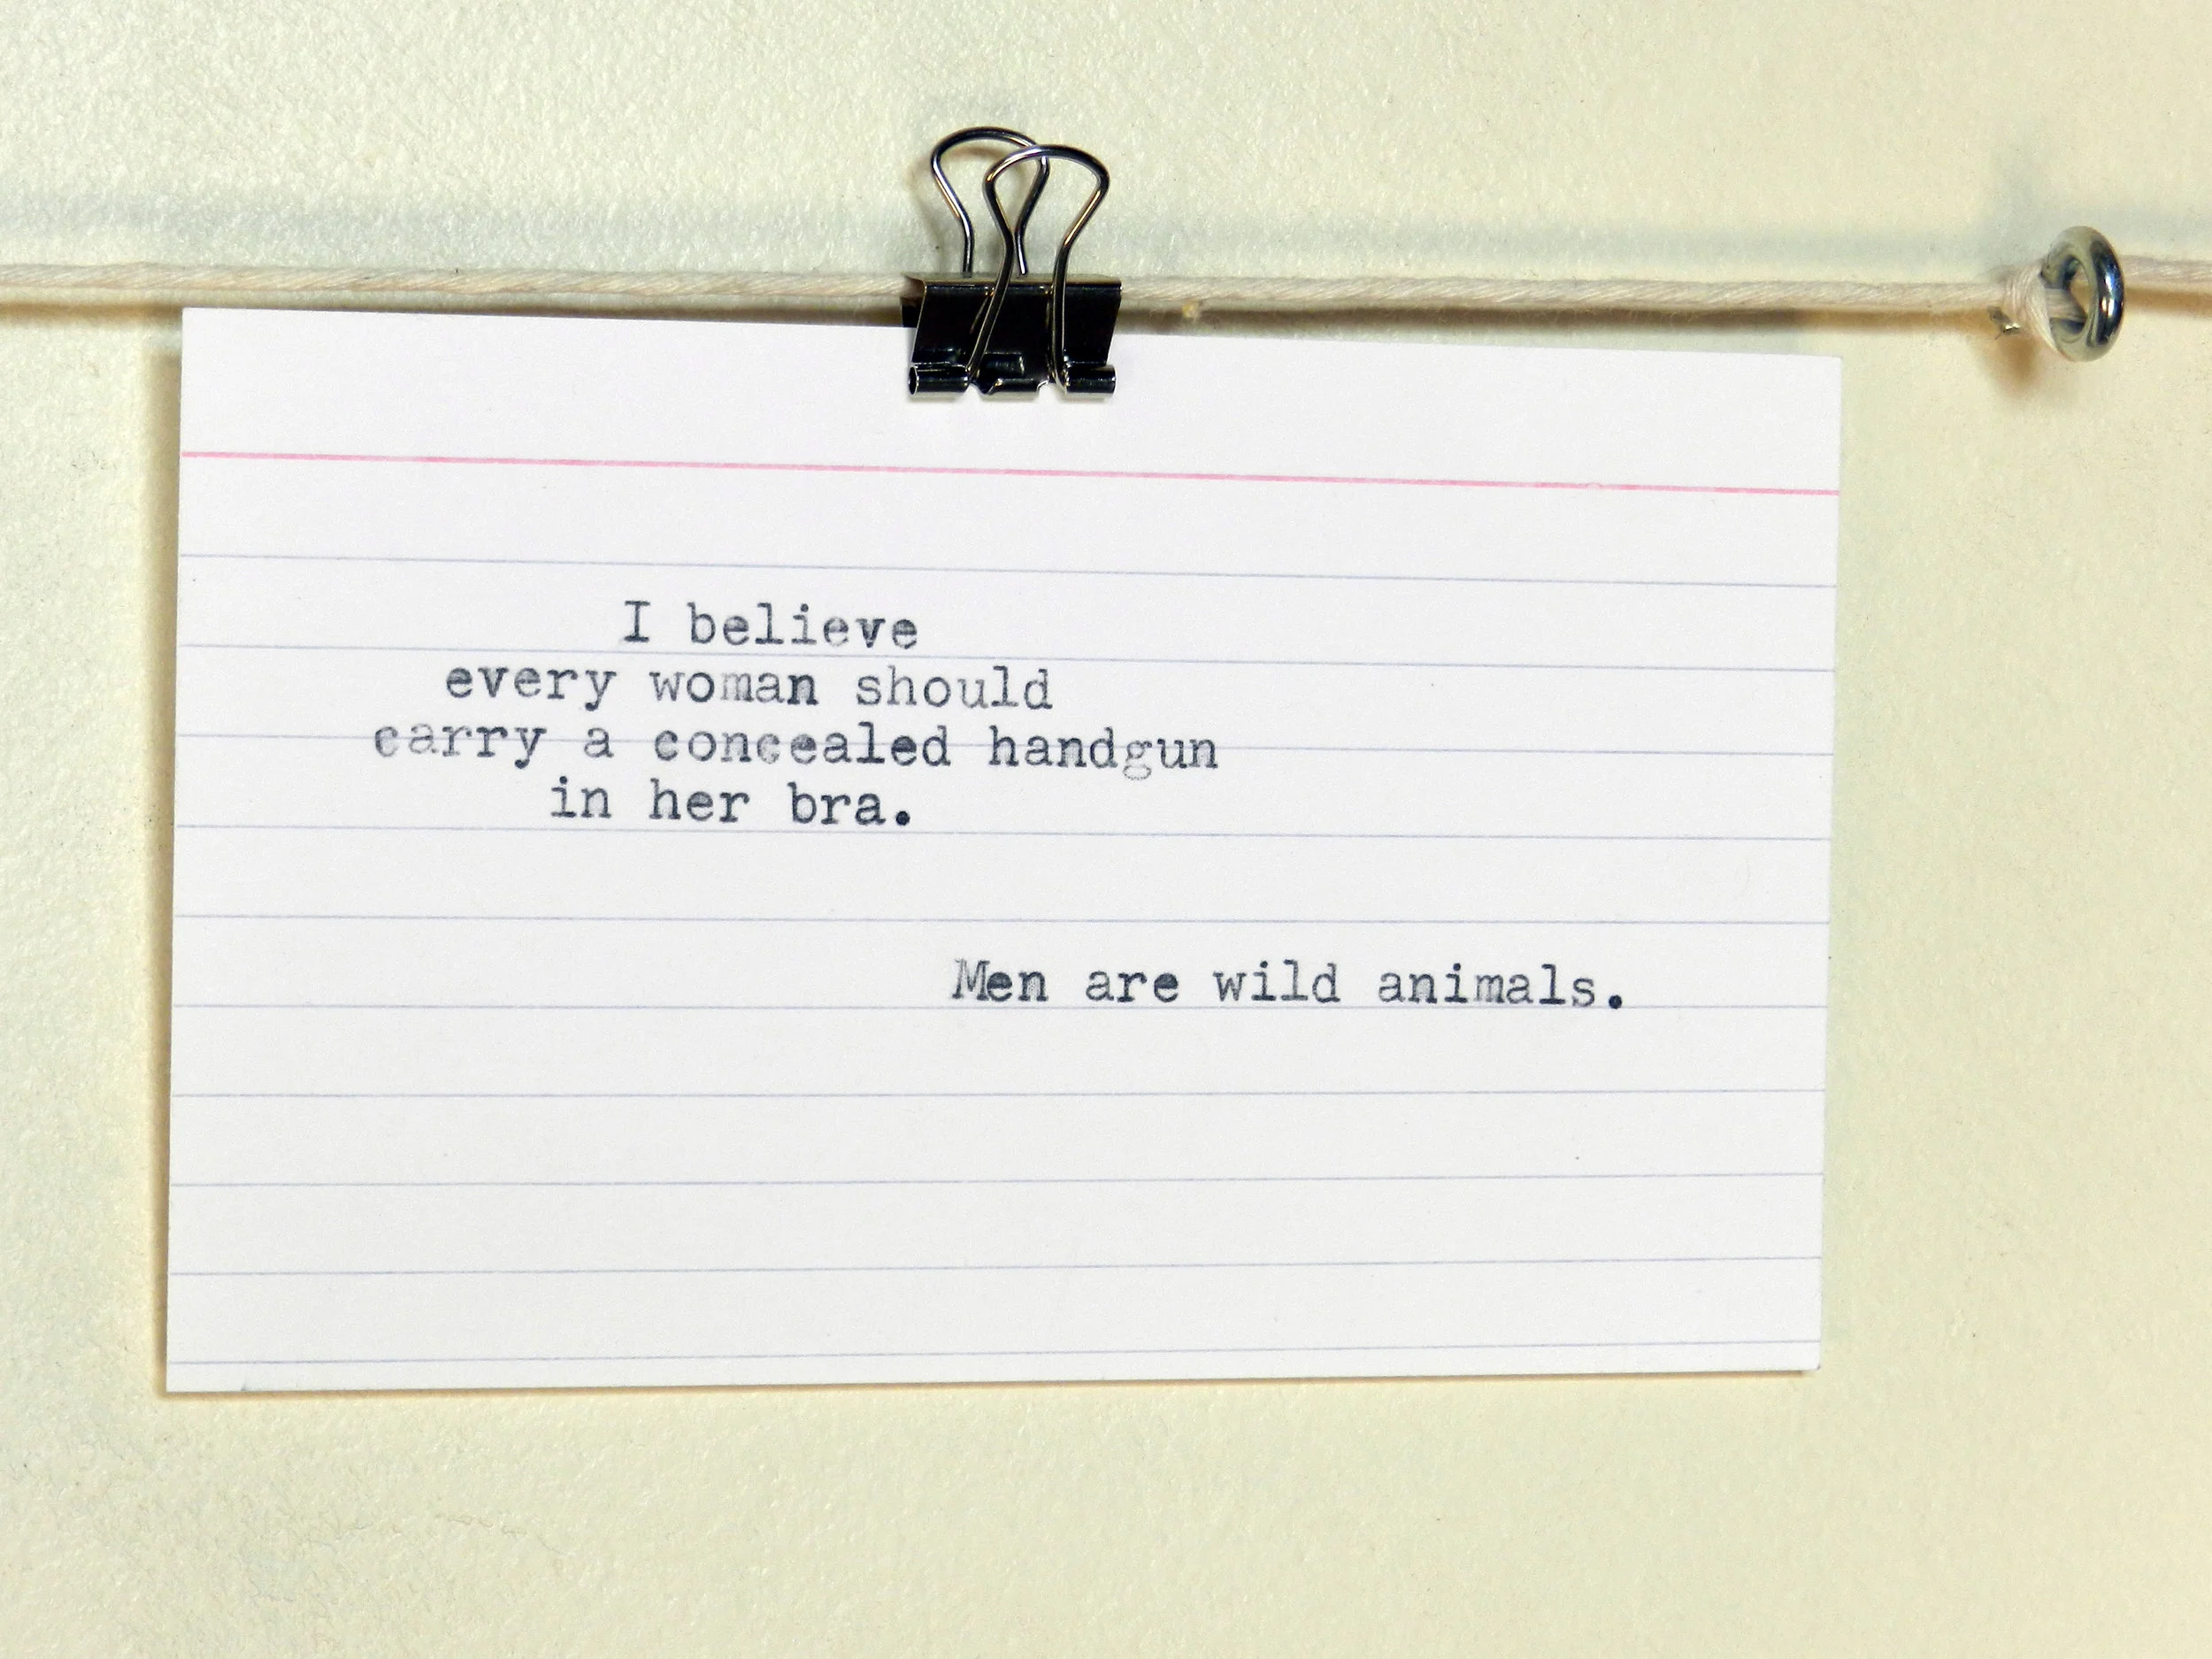 I believe
every woman should
carry a concealed handgun
in her bra.
Men are wild animals.